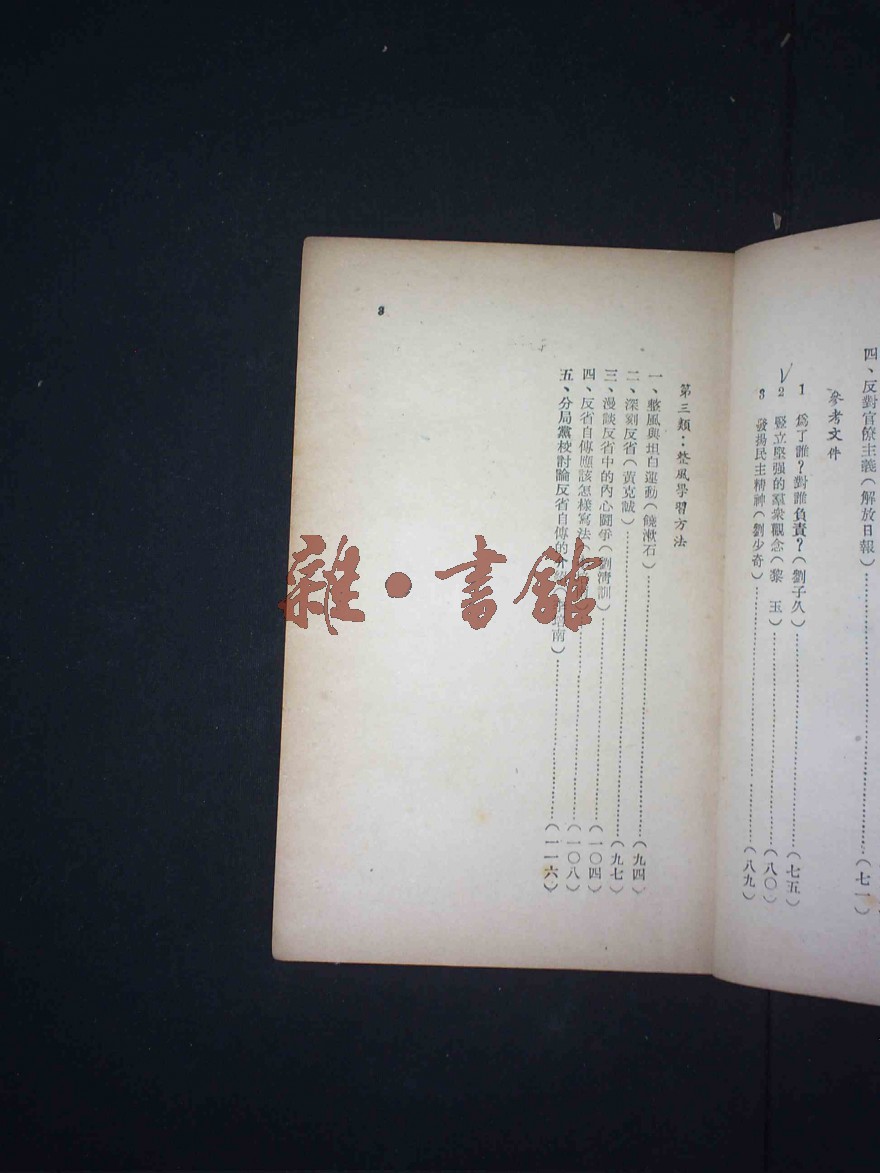 四、反對官僚主義(解放日報)……(七一)
參考文件
1 爲了誰?對誰負責?(劉子久)……(七五)
2 竪立堅强的羣衆觀念(黎 玉)……(八〇)
3 發揚民主精神(劉少奇)……(八九)
第三類:整風學習方法
一、整風與坦白運動(饒漱石)……(九四)
二、深刻反省(黃克誠)……(九七)
三、漫談反省中的內心鬪爭(劉淸訓)……(一〇四)
四、反省自傳應該怎樣寫法(……(一〇八)
五、分局黨校討論反省自傳的 南)……(一一六)
3
雜·書館